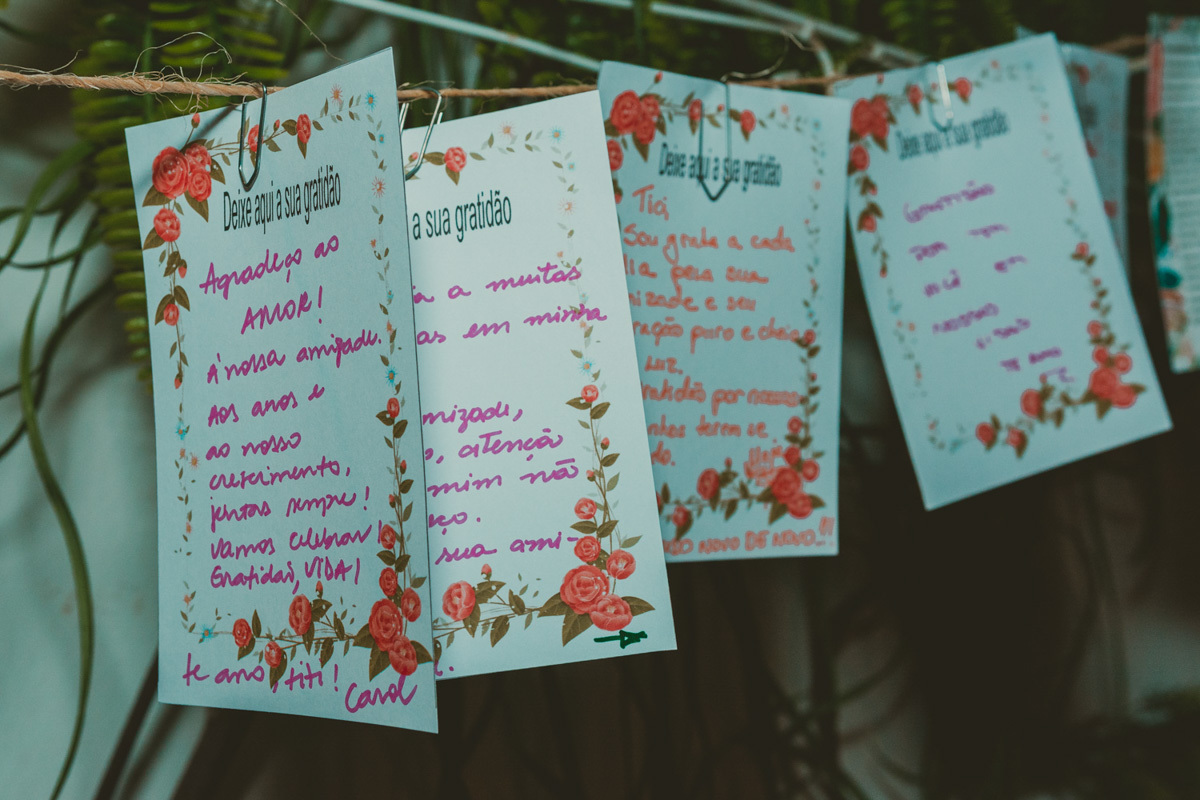 Deixe aqui a sua gratidão
Agradeço ao
AMOR!
À nossa amizade.
Aos anos e
ao nosso
crescimento,
juntas sempre!
Vamos celebrar
Gratidão, VIDA!
te amo, titi!
Carol
a sua gratidão
a a muitas
as em minha
mizade,
, atenção
mim não
ço.
sua ami-
Deixe aqui a sua gratidão
Tici,
Sou grata a cada
dia pela sua
mizade e seu
ração puro e cheio
luz.
ratidão por nossos
nhos terem se
do.
NO NOVO DE NOVO!!!
Deixe aqui a sua gratidão
Gratidão
por
em
nossas
te amo